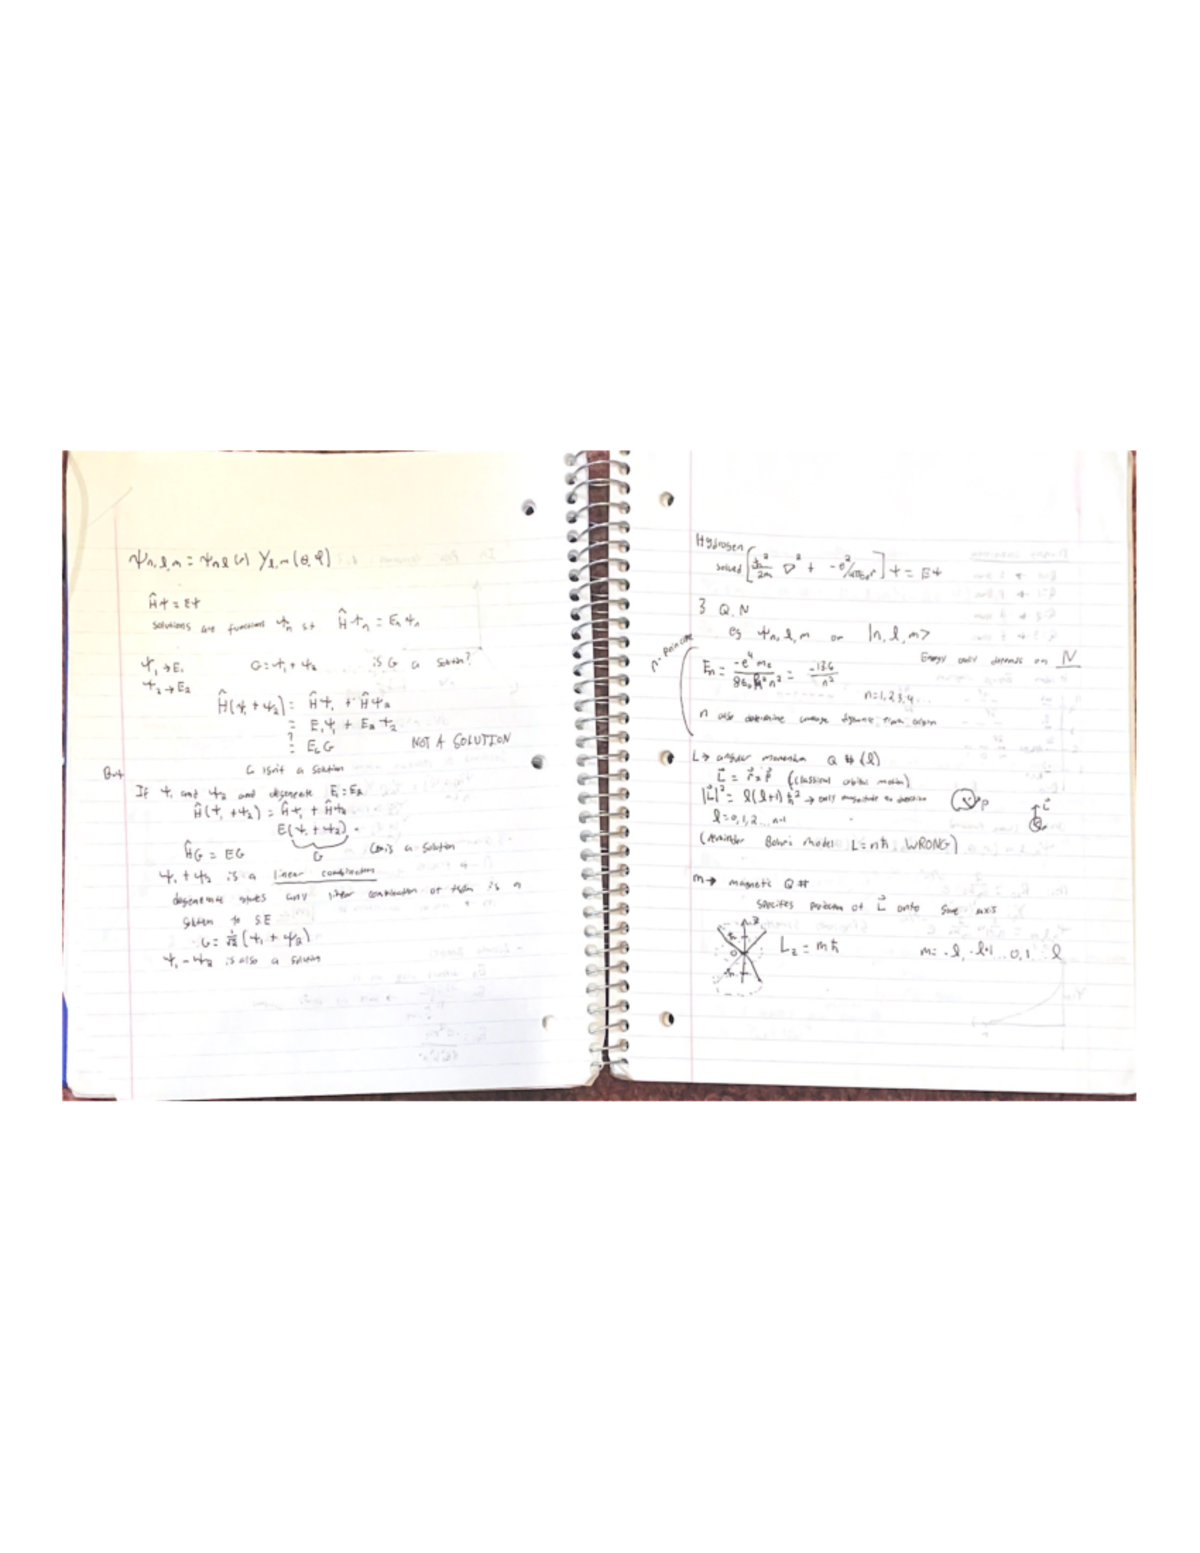 ψn,l,m = ψnl(r) Yl,m(θ,φ)
Ĥψ = Eψ
solutions are functions ψn st Ĥψn = Enψn
ψ1 → E1 G = ψ1 + ψ2 is G a solution?
ψ2 → E2
Ĥ(ψ1 + ψ2) = Ĥψ1 + Ĥψ2
= E1ψ1 + E2ψ2
?
= EGG NOT A SOLUTION
G isn't a solution
But
If ψ1 and ψ2 and degenerate E1 = E2
Ĥ(ψ1 + ψ2) = Ĥψ1 + Ĥψ2
E(ψ1 + ψ2)
G
ĤG = EG G is a solution
ψ1 + ψ2 is a linear combination
degenerate states any linear combination of them is a
solution to SE
G = 1/√2 (ψ1 + ψ2)
ψ1 - ψ2 is also a solution
Hydrogen
solved [ħ²/2m ∇² + -e²/4πε0r] ψ = Eψ
3 Q.N
eg ψn,l,m or |n,l,m>
Energy only depends on N
n-Principle
En = -e⁴me/8ε0h²n² = -13.6/n²
n=1,2,3,4..
n also determine average distance from origin
L → angular momentum Q # (l)
L⃗ = r⃗ x p⃗ (classical orbital motion)
|L⃗|² = l(l+1)ħ² → only magnitude no direction
p
L⃗
l = 0,1,2...n-1
(reminder Bohr's model L=nħ WRONG)
m → magnetic Q #
specifies projection of L⃗ onto some axis
z
ħ
0
-ħ
Lz = mħ m = -l, -l+1 ... 0,1 ... l